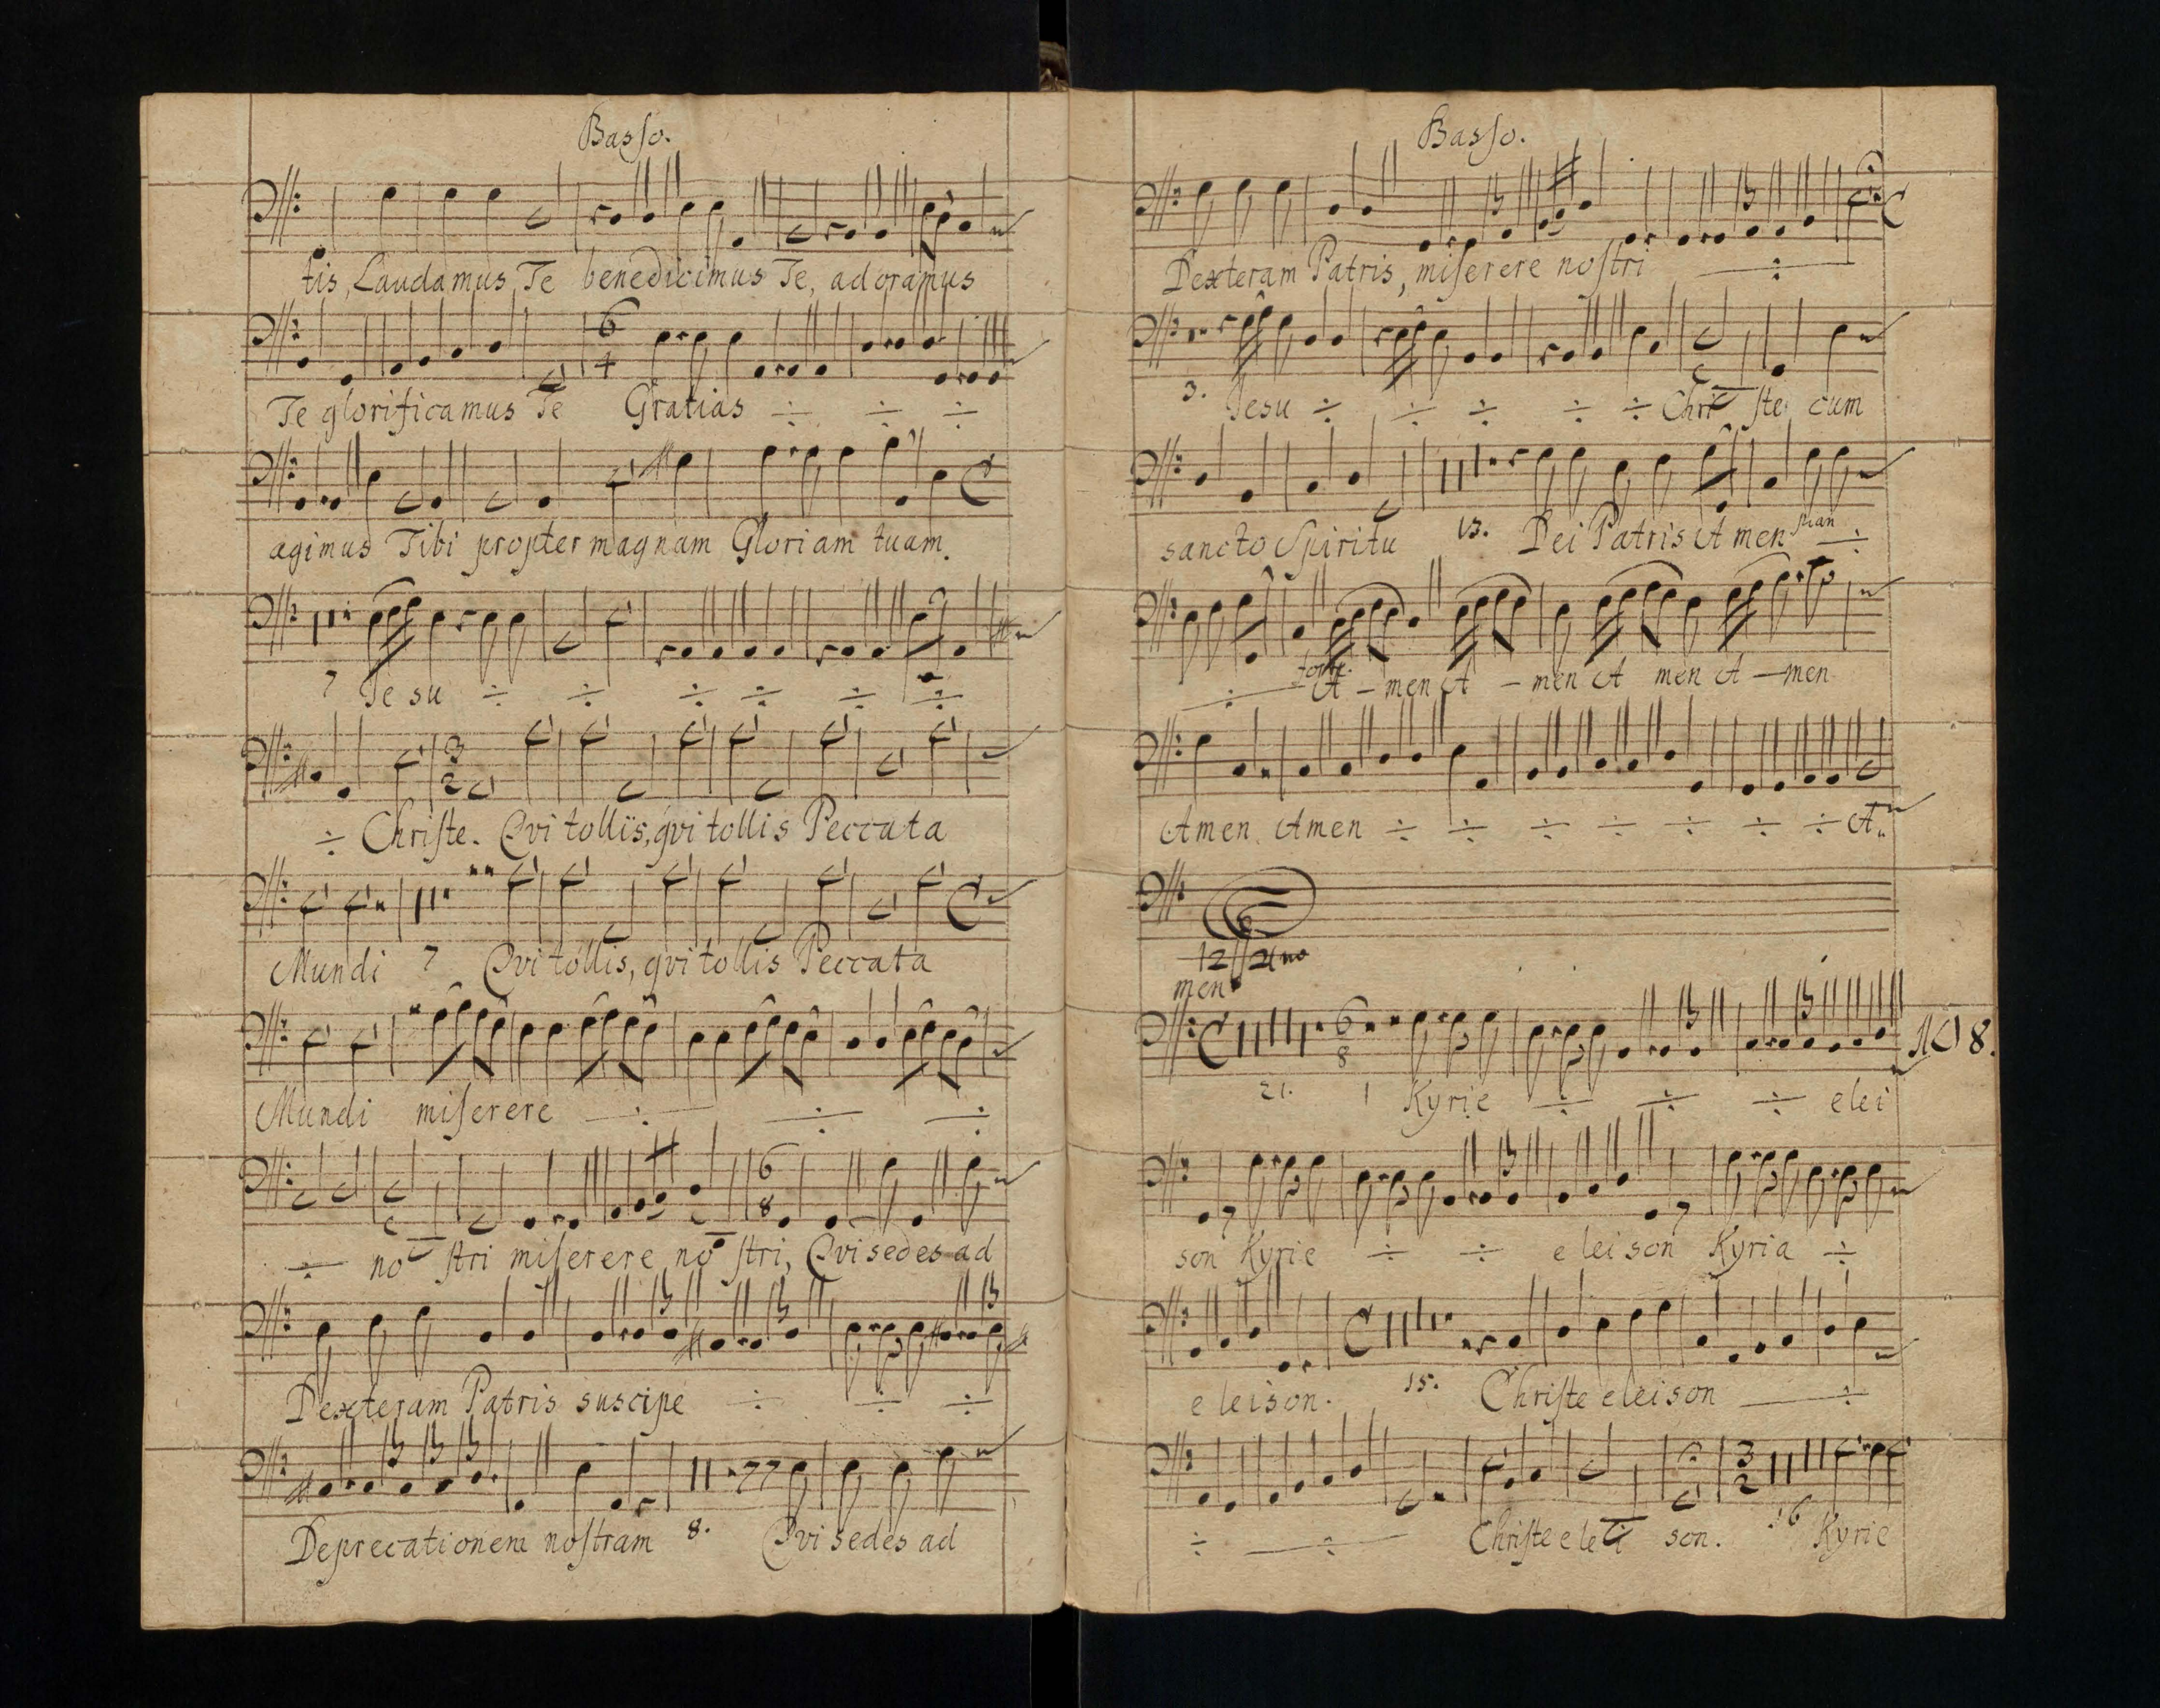 Basso.
tis, Laudamus Te benedicimus Te, adoramus
6
4
Te glorificamus Te Gratias ÷ ÷ ÷
agimus Tibi propter magnam Gloriam tuam.
7 Jesu ÷ ÷ ÷ ÷ ÷ ÷
3
2
÷ Christe. Qvi tollis, qvi tollis Peccata
Mundi 7 Qvi tollis, qvi tollis Peccata
Mundi miserere ÷ ÷ ÷
6
8
÷ no stri miserere no stri, Qvi sedes ad
Dexteram Patris suscipe ÷ ÷ ÷
Deprecationem nostram 8. Qvi sedes ad
Basso.
Dexteram Patris, miserere nostri ÷
3. Jesu ÷ ÷ ÷ ÷ ÷ Chri ste cum
sancto Spiritu 13. Dei Patris Amen pian ÷
÷ forte. A - men A - men A men A - men
Amen Amen ÷ ÷ ÷ ÷ ÷ ÷ ÷ A
men
6
8
No 8.
21. 1 Kyrie ÷ ÷ ÷ elei
son Kyrie ÷ ÷ e leison Kyria ÷
e leison. 15. Christe eleison ÷
3
2
÷ ÷ Christe elei son. 16 Kyrie